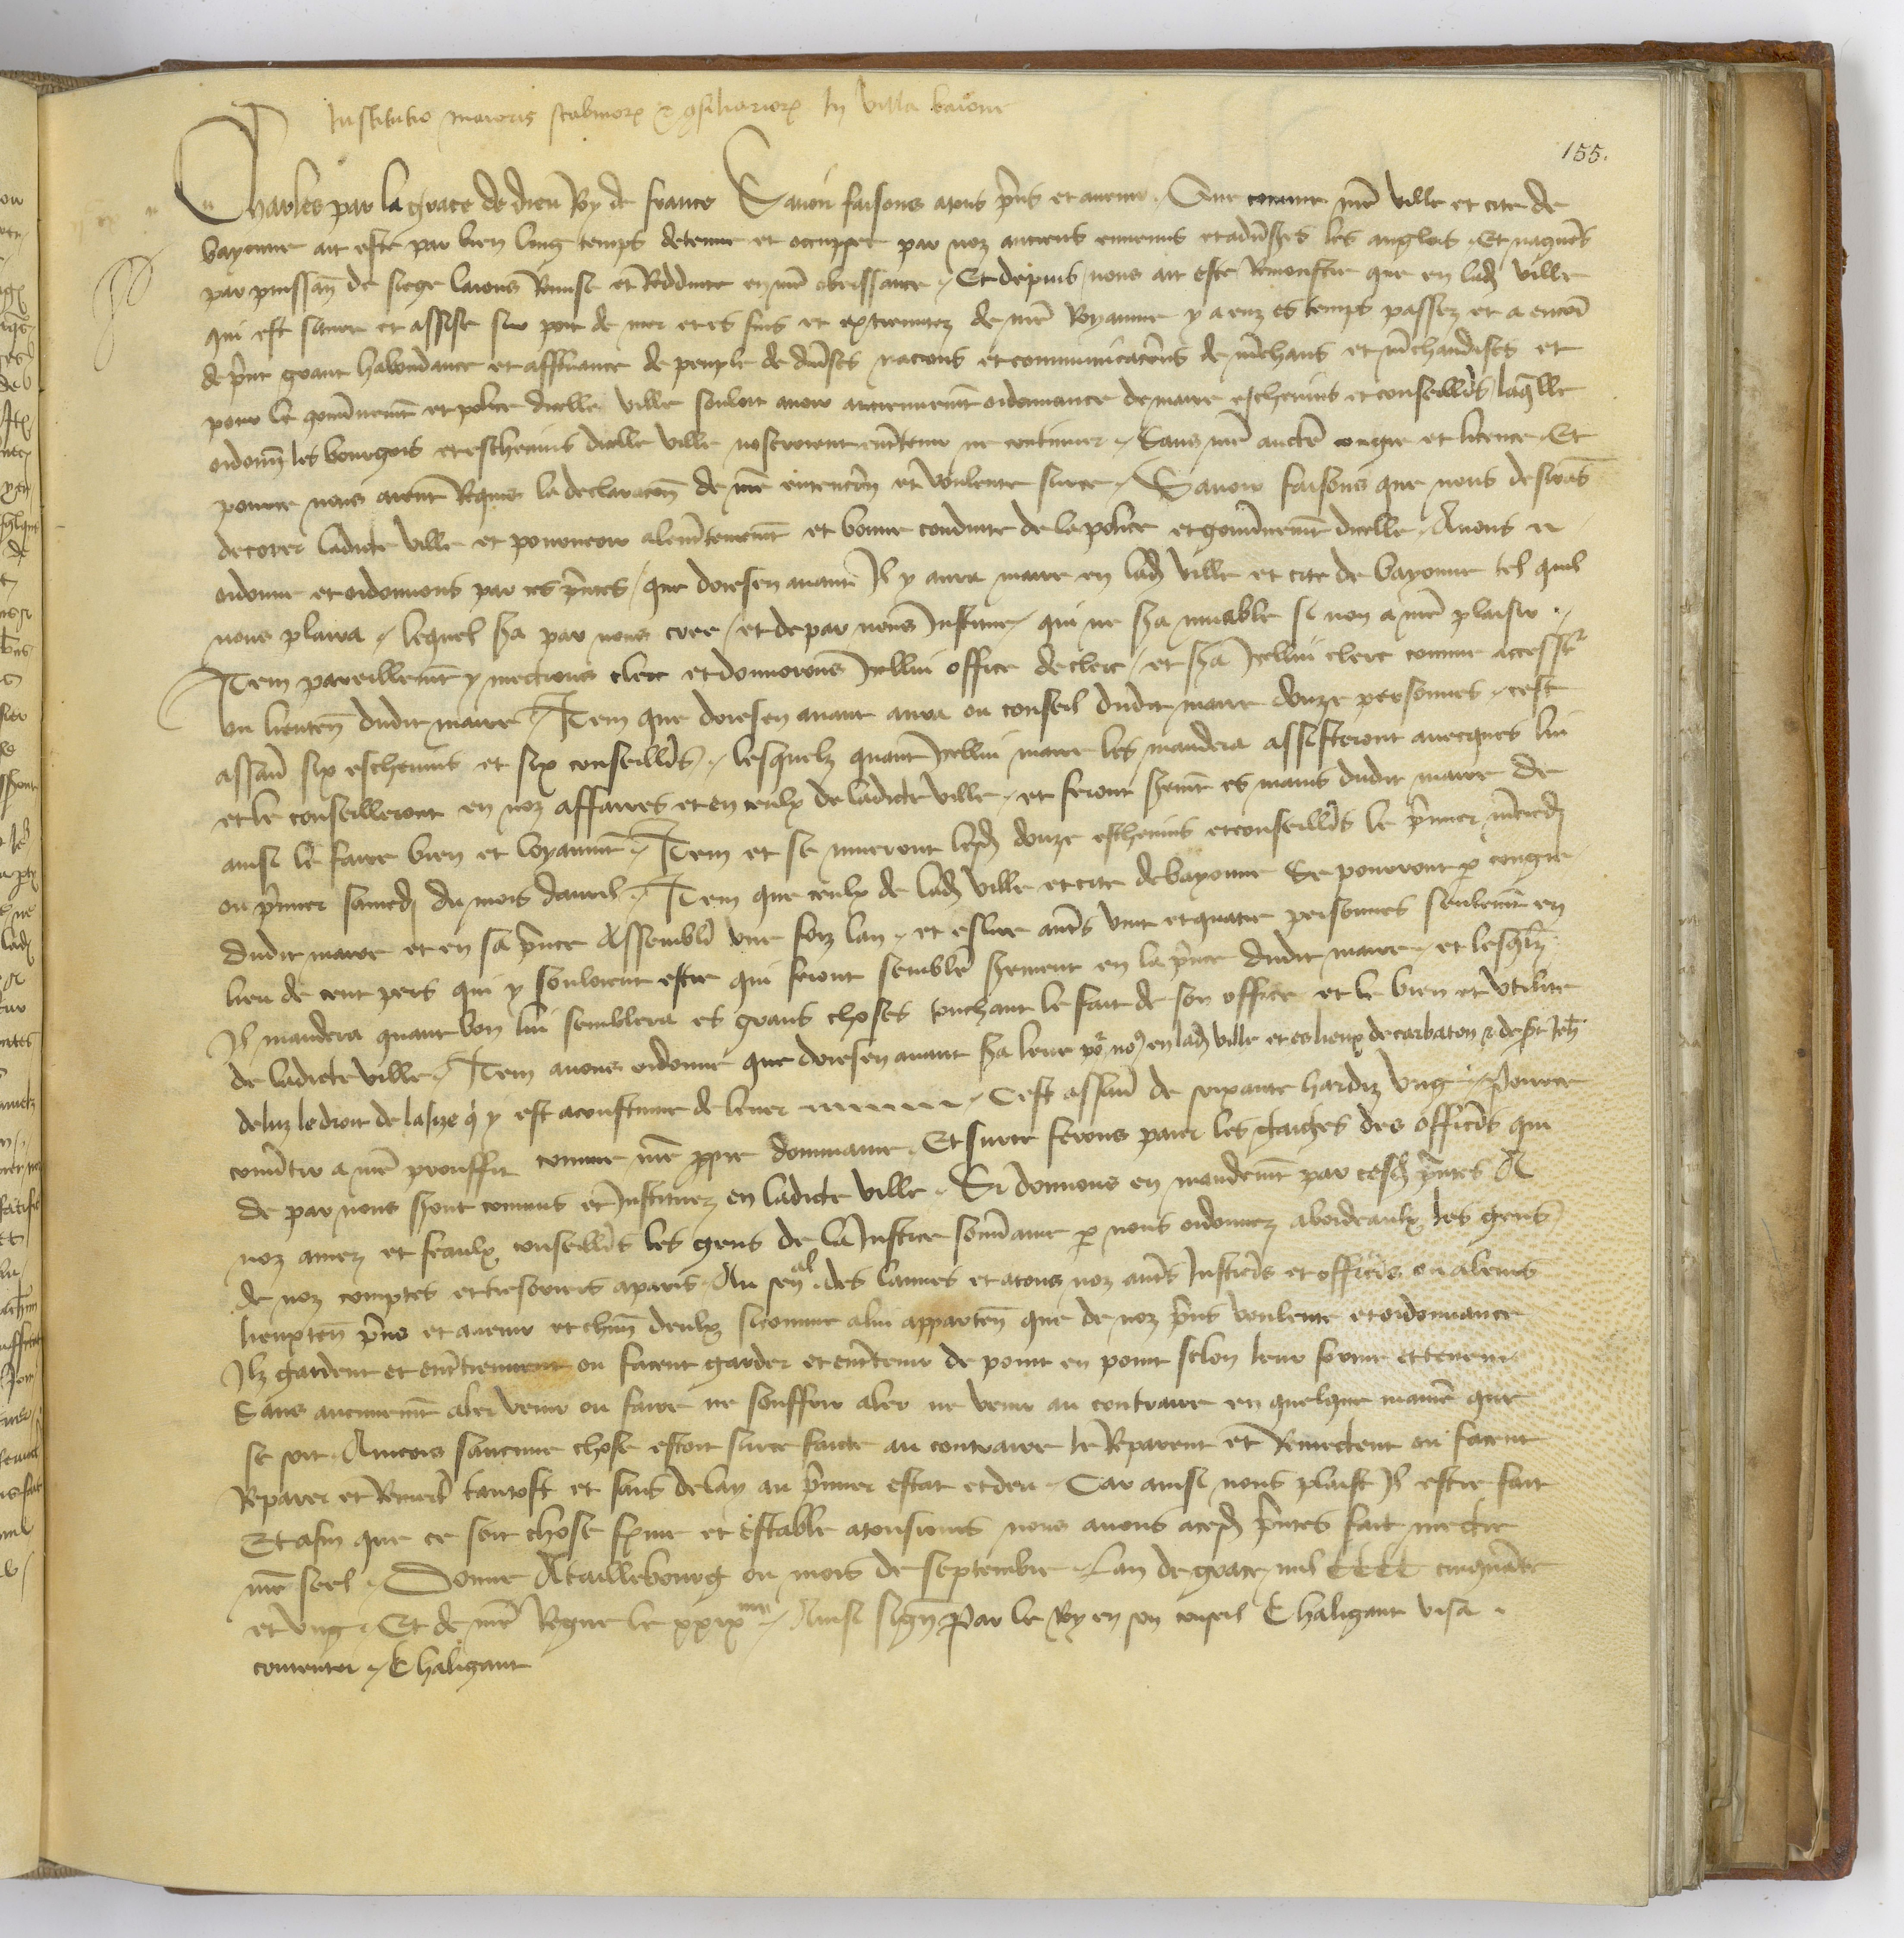 Institutio maioris scabinorum et consiliariorum In villa baione
155.
Charles par la grace de dieu Roy de france Savoir faisons a tous presens et avenir Que comme nostre ville et cite de
bayonne ait este par bien long temps detenue et occuppee par noz anciens ennemis et adversaires les anglois Et nagueres
par puissance de siege l'aions Remise et Redduite en nostre obeissance Et depuis nous ait este Remonstre que en ladite ville
qui est situee et assise sur port de mer et es fins et extremitez de nostre Royaume y a euz es temps passez et a encore
de present grant habondance et affluance de peuple de diverses nacions et communicacions de marchans et marchandises et
pour le gouvernement et police dicelle ville souloit avoir anciennement ordonnance de maire eschevins et conseilliers laquelle
ordonnance les bourgois et eschevins dicelle ville noseroient entretenir ne continuer Sans nostre auctorite congie et licence Et
pource nous aient Requis la declaracion de nostre entencion et voulente surce Savoir faisons que nous desirans
decorer ladicte ville et pourveoir a lentretenement et bonne conduite de la police et gouvernement dicelle Avons
ordonne et ordonnons par ces presentes que doresenavant Il y aura maire en ladite ville et cite de bayonne tel quil
nous plaira lequel sera par nous cree et de par nous Institue qui ne sera muable si non a nostre plaisir
Item pareillement y mectrons clerc et donnerons Icellui office de clerc et sera Icellui clerc comme accesseur
ou lieutenant dudit maire Item que doresenavant aura ou conseil dudit maire douze personnes cest
assavoir six eschevins et six conseilliers lesquelz quant Icellui maire les mandera assisteront avecques lui
et le conseilleront en noz affaires et en ceulx de ladicte ville et feront serement es mains dudit maire de
ainsi le faire bien et loyaument Item et se mueront lesdits douze eschevins et conseilliers le premier mercredi
ou premier samedi du mois davril Item que ceulx de ladite ville et cite de bayonne Se pourront par congie
dudit maire et en sa presence Assembler une foiz lan et eslire autres vint et quatre personnes seulement en
lieu de cent pers qui y souloient estre qui feront semblable serement en la presence dudit maire et lesquelz
Il mandera quant bon lui semblera es grans choses touchant le fait de son office et le bien et utilite
de ladicte ville Item avons ordonne que doresenavant sera leve pour nous en ladite ville et es lieux de carbaton et de saint Jehan
de luz le droit de lasize qui y est acoustume de lever Cest assavoir de soixante hardiz ung Pource
convertir a nostre prouffit comme nostre propre dommaine Et surce ferons paier les gaiges des officiers qui
de par nous seront commis et Instituez en ladicte ville Si donnons en mandement par cesdites presentes A
noz amez et feaulx conseilliers les gens de la Justice souveraine par nous ordonnez a bordeaulx les gens
de noz comptes et tresoriers a paris Au seneschal des lannes et a tous noz autres Justiciers et officiers ou a leurs
lieuxtenans presens et avenir et a chacun deulx sicomme a lui appartendra que de noz presens voulente et ordonnance
Ilz gardent et entretiennent ou facent garder et entretenir de point en point selon leur forme et teneur
Sans aucunement aler venir ou faire ne souffrir aler ne venir au contraire en quelque maniere que
se soit Aincois saucune chose estoit surce faicte au contraire le Reparent et Remectent ou facent
Reparer et Remectre tantost et sans delay au premier estat et deu Car ainsi nous plaist Il estre fait
Et afin que ce soit chose ferme et estable a tousiours nous avons a cesdites presentes fait mectre
nostre seel Donne A taillebourg ou mois de septembre Lan de grace mil CCCC cinquante
et ung Et de nostre Regne le xxixme Ainsi signe Par le Roy en son conseil Chaligant visa
contentor Chaligant